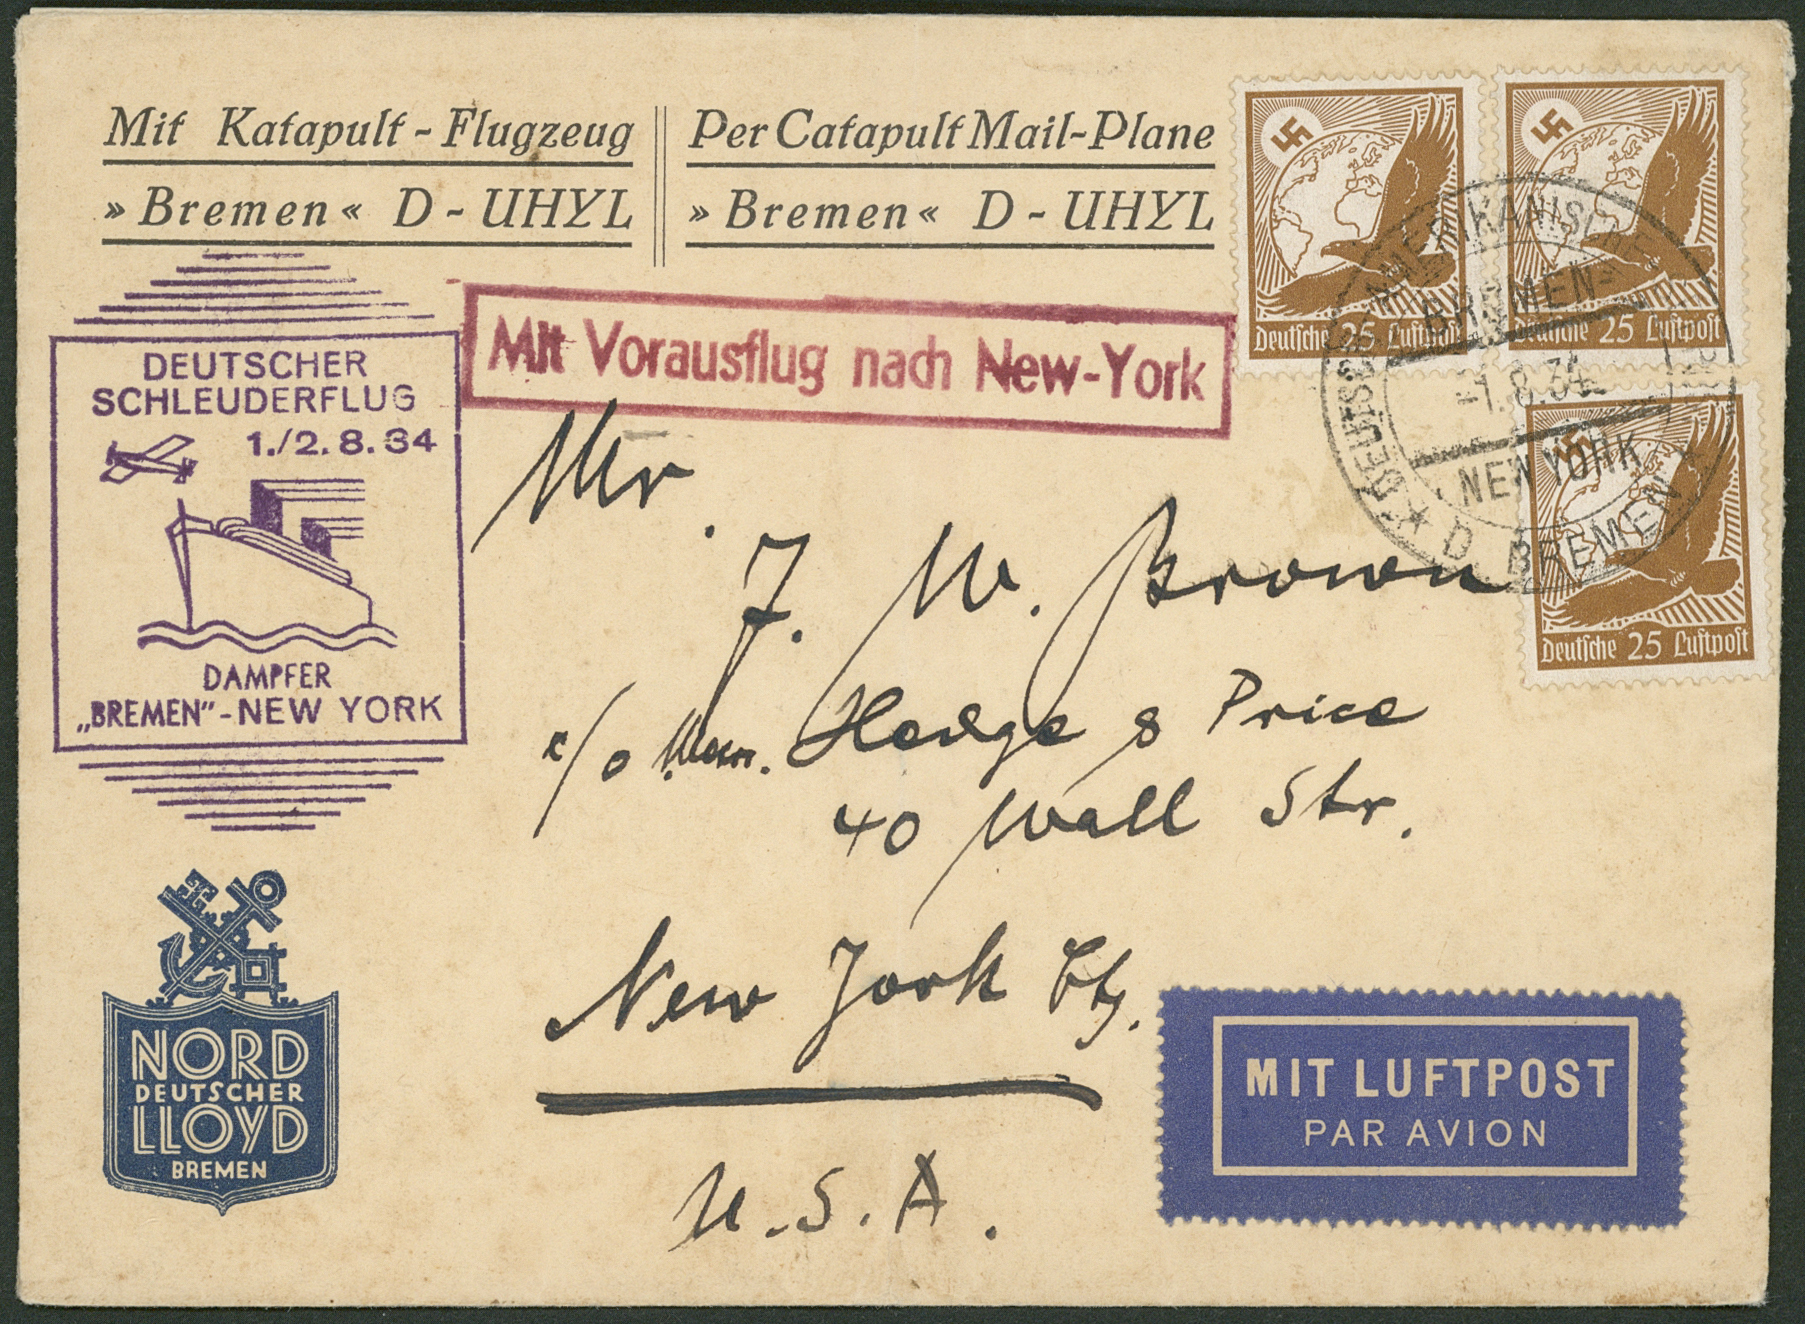 Mit Katapult-Flugzeug
»Bremen« D-UHYL
Per Catapult Mail-Plane
»Bremen« D-UHYL
Deutsche 25 Luftpost
Deutsche 25 Luftpost
Deutsche 25 Luftpost
BREMEN-
-1.8.34
NEW YORK
D BREMEN
DEUTSCHER
SCHLEUDERFLUG
1./2.8.34
DAMPFER
„BREMEN”-NEW YORK
Mit Vorausflug nach New-York
Mr.
J. W. Brown
c/o Hedge & Price
40 Wall Str.
New York Cty.
U.S.A.
NORD
DEUTSCHER
LLOYD
BREMEN
MIT LUFTPOST
PAR AVION